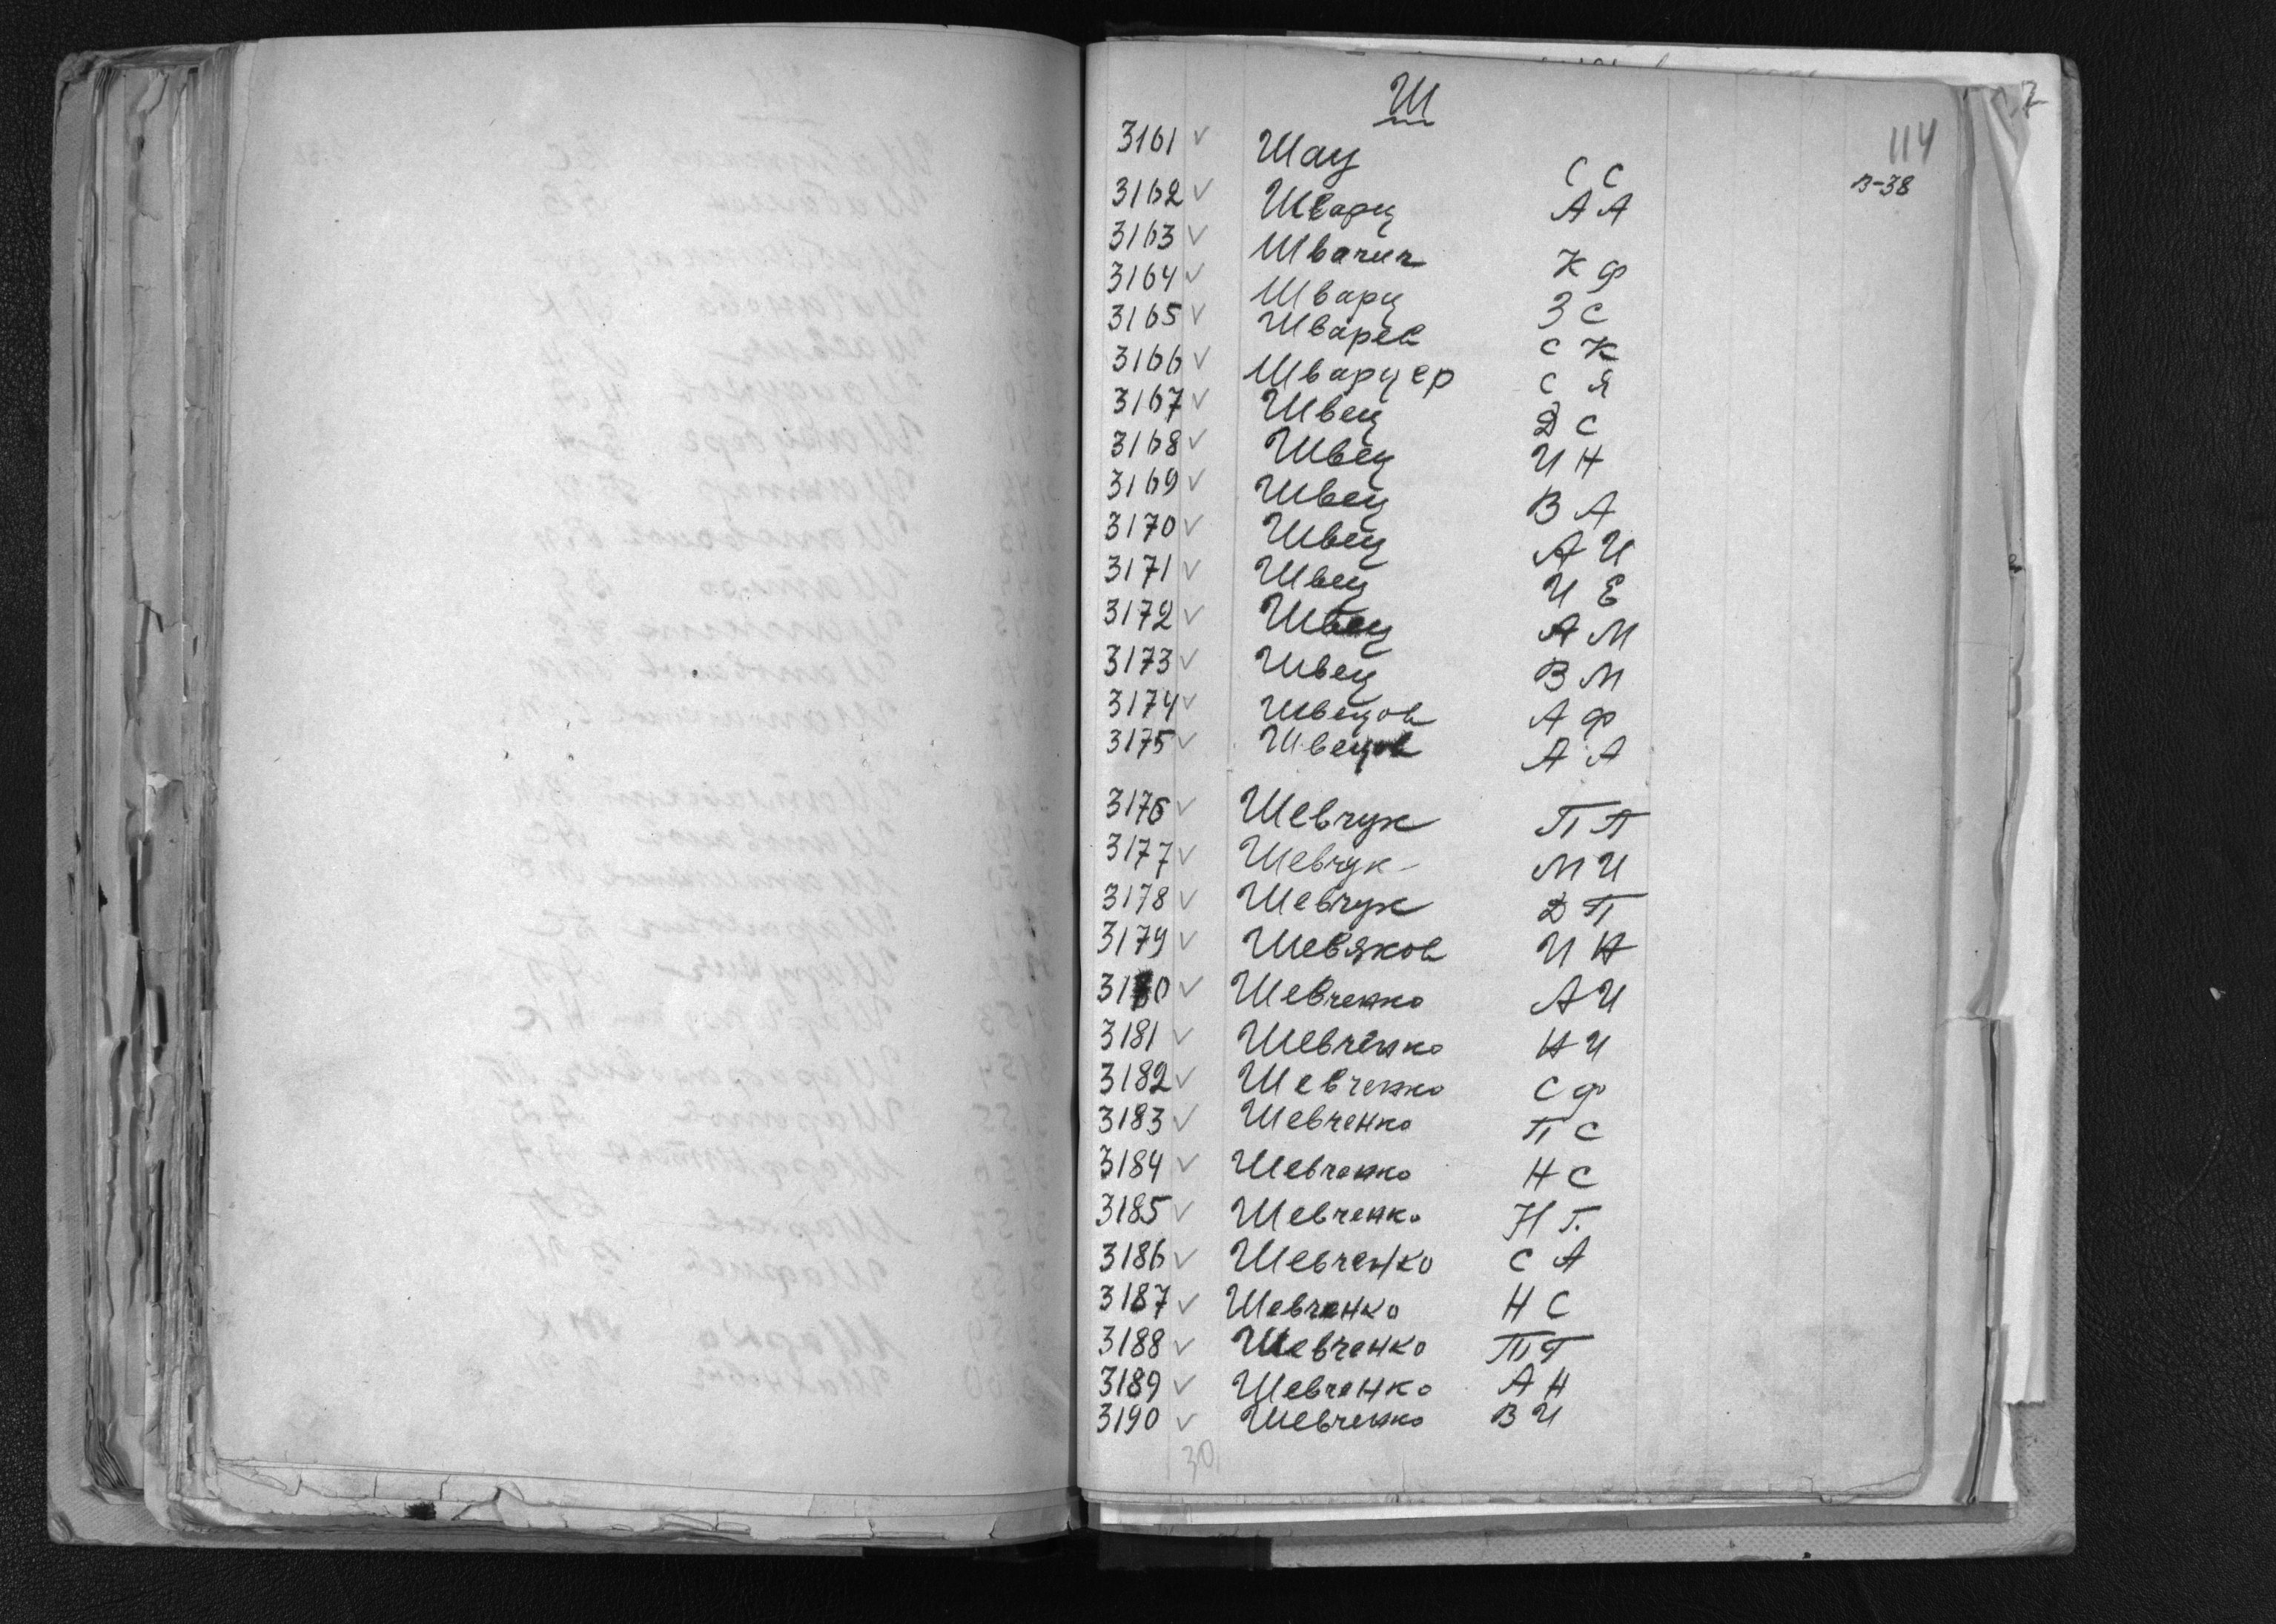 Ш
114
3161 ✓ Шац С С В-38
3162 ✓ Шварц А А
3163 ✓ Швачич К Ф
3164 ✓ Шварц З С
3165 ✓ Шварев С К
3166 ✓ Шварцер С Я
3167 ✓ Швец Д С
3168 ✓ Швец И Н
3169 ✓ Швец В А
3170 ✓ Швец А И
3171 ✓ Швец И Е
3172 ✓ Швец А М
3173 ✓ Швец В М
3174 ✓ Швецов А Ф
3175 ✓ Швецов А А
3176 ✓ Шевчук П П
3177 ✓ Шевчук М И
3178 ✓ Шевчук Д П
3179 ✓ Шевяков И Н
3180 ✓ Шевченко А И
3181 ✓ Шевченко Н И
3182 ✓ Шевченко С Ф
3183 ✓ Шевченко П С
3184 ✓ Шевченко Н С
3185 ✓ Шевченко Н Г.
3186 ✓ Шевченко С А
3187 ✓ Шевченко Н С
3188 ✓ Шевченко Т Г
3189 ✓ Шевченко А Н
3190 ✓ Шевченко В И
30